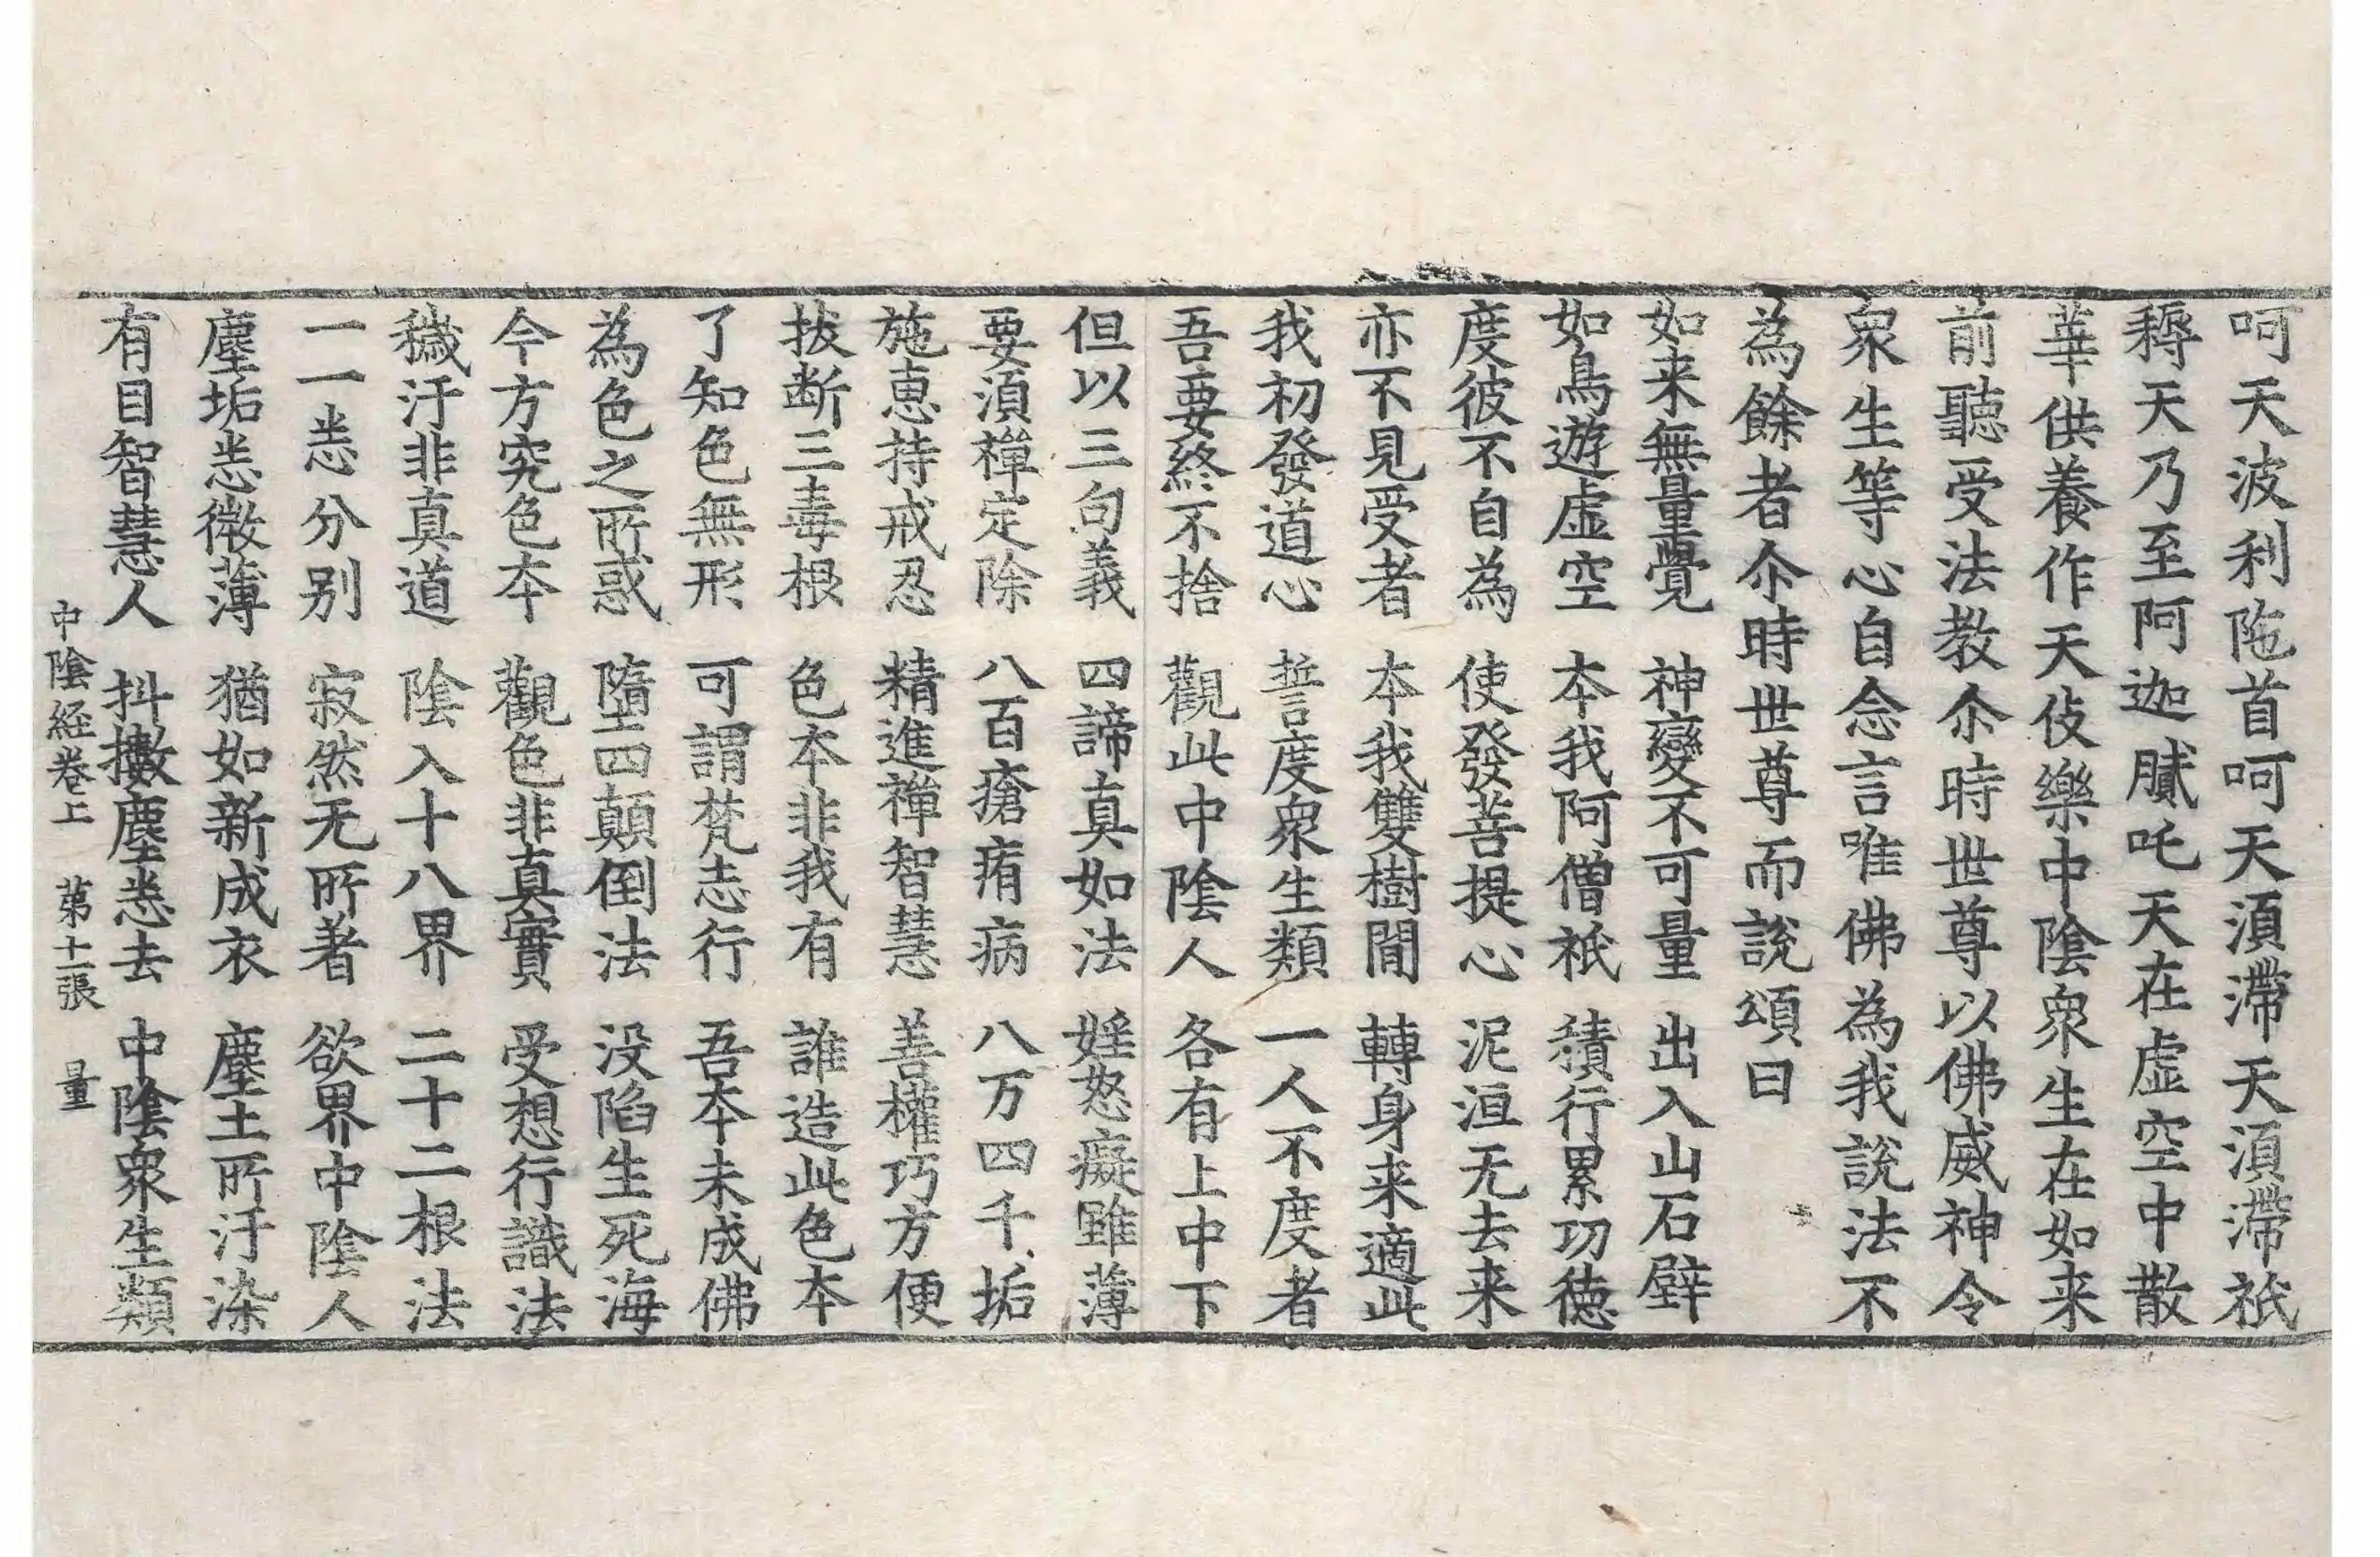 呵天波利陁首呵天須滯天須滯祇
耨天乃至阿迦膩吒天在虛空中散
華供養作天伎樂中陰衆生在如来
前聽受法教尒時世尊以佛威神令
衆生等心自念言唯佛為我說法不
為餘者尒時世尊而說頌曰
如来無量覺 神變不可量 出入山石壁
如鳥遊虛空 本我阿僧祇 積行累功德
度彼不自為 使發菩提心 泥洹无去来
亦不見受者 本我雙樹間 轉身来適此
我初發道心 誓度衆生類 一人不度者
吾要終不捨 觀此中陰人 各有上中下
但以三句義 四諦真如法 婬怒癡雖薄
要須禪定除 八百瘡痏病 八万四千垢
施恵持戒忍 精進禪智慧 善權巧方便
拔断三毒根 色本非我有 誰造此色本
了知色無形 可謂梵志行 吾本未成佛
為色之所惑 墮四顛倒法 没陷生死海
今方究色本 觀色非真實 受想行識法
穢汙非真道 陰入十八界 二十二根法
一一悉分别 寂然无所著 欲界中陰人
塵垢悉微薄 猶如新成衣 塵土所汙染
有目智慧人 抖擻塵悉去 中陰衆生類
中陰経卷上 第十一張 量